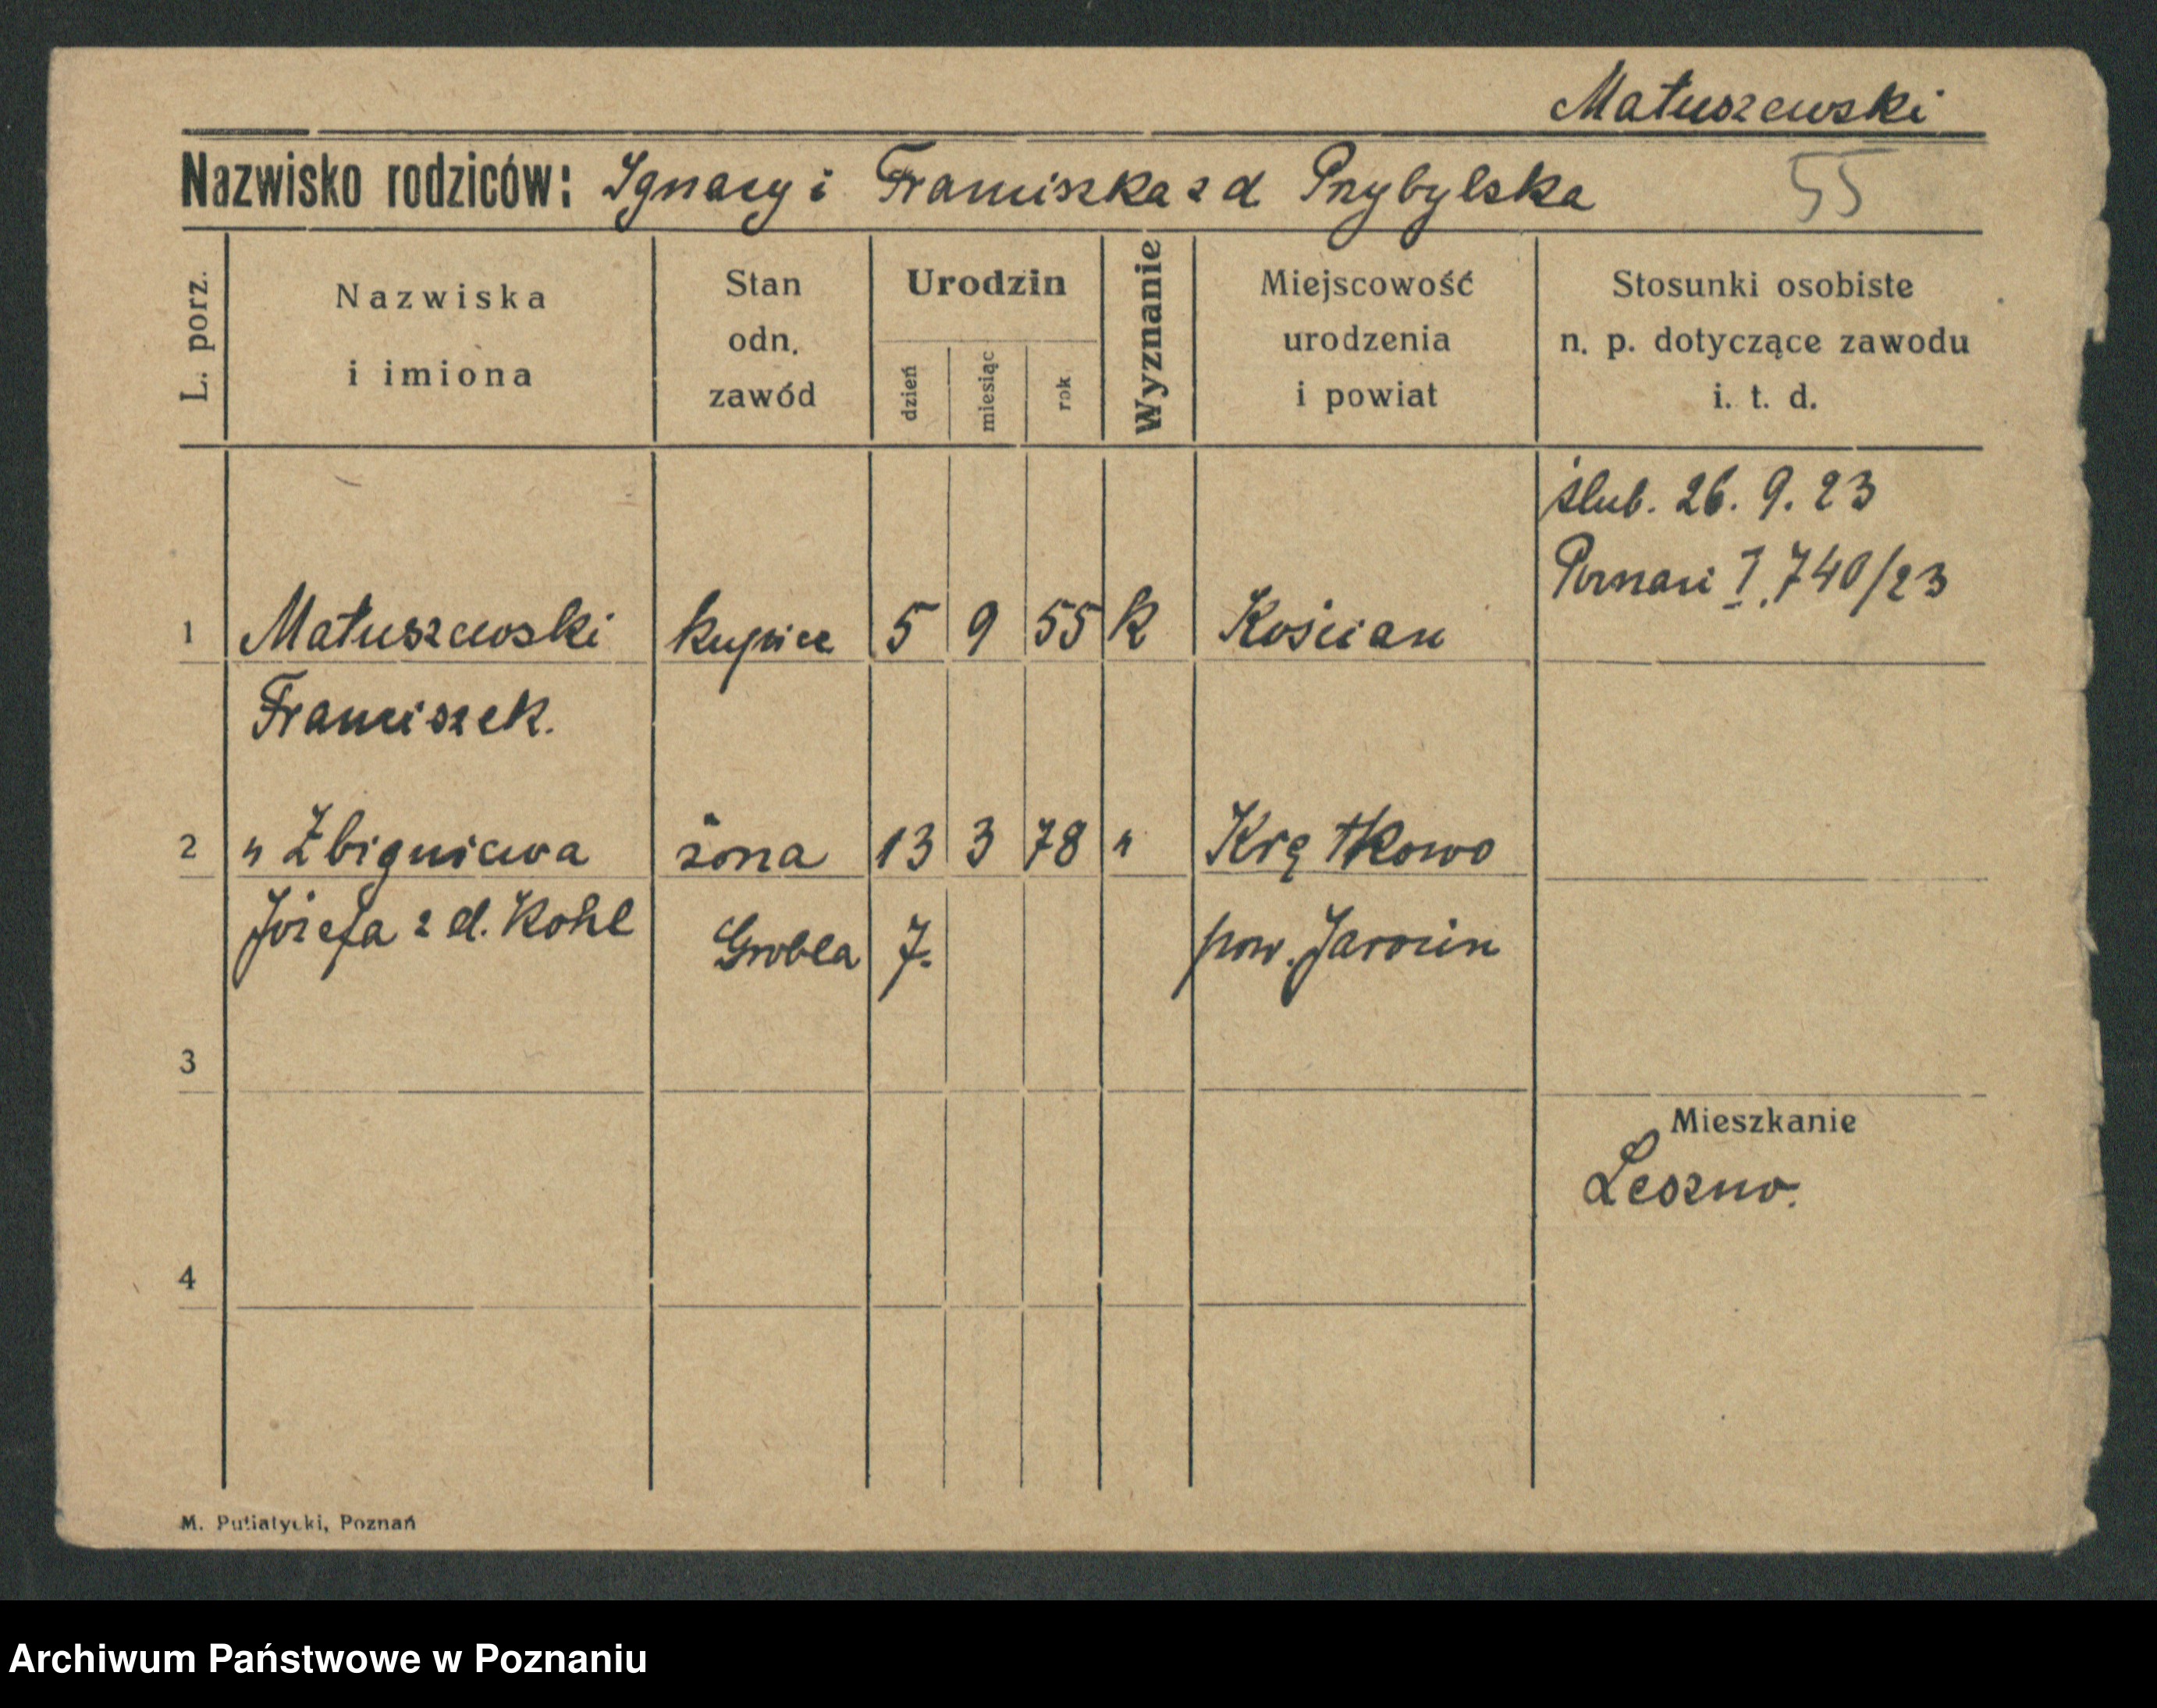 Matuszewski
Nazwisko rodziców: Ignacy i Franciszka z d. Przybylska 55
L. porz.
Nazwiska
i imiona
Stan
odn.
zawód
Urodzin
dzień
miesiąc
rok
Wyznanie
Miejscowość
urodzenia
i powiat
Stosunki osobiste
n. p. dotyczące zawodu
i. t. d.
ślub. 26. 9. 23
Poznań I. 740/23
1 Matuszewski kupiec 5 9 55 K Kościan
Franciszek.
2 " Zbigniewa żona 13 3 78 " Krzątkowo
Józefa z d. Kohl Grobla 7. pow. Jarocin
3
Mieszkanie
Leszno.
4
M. Putiatycki, Poznań
Archiwum Państwowe w Poznaniu